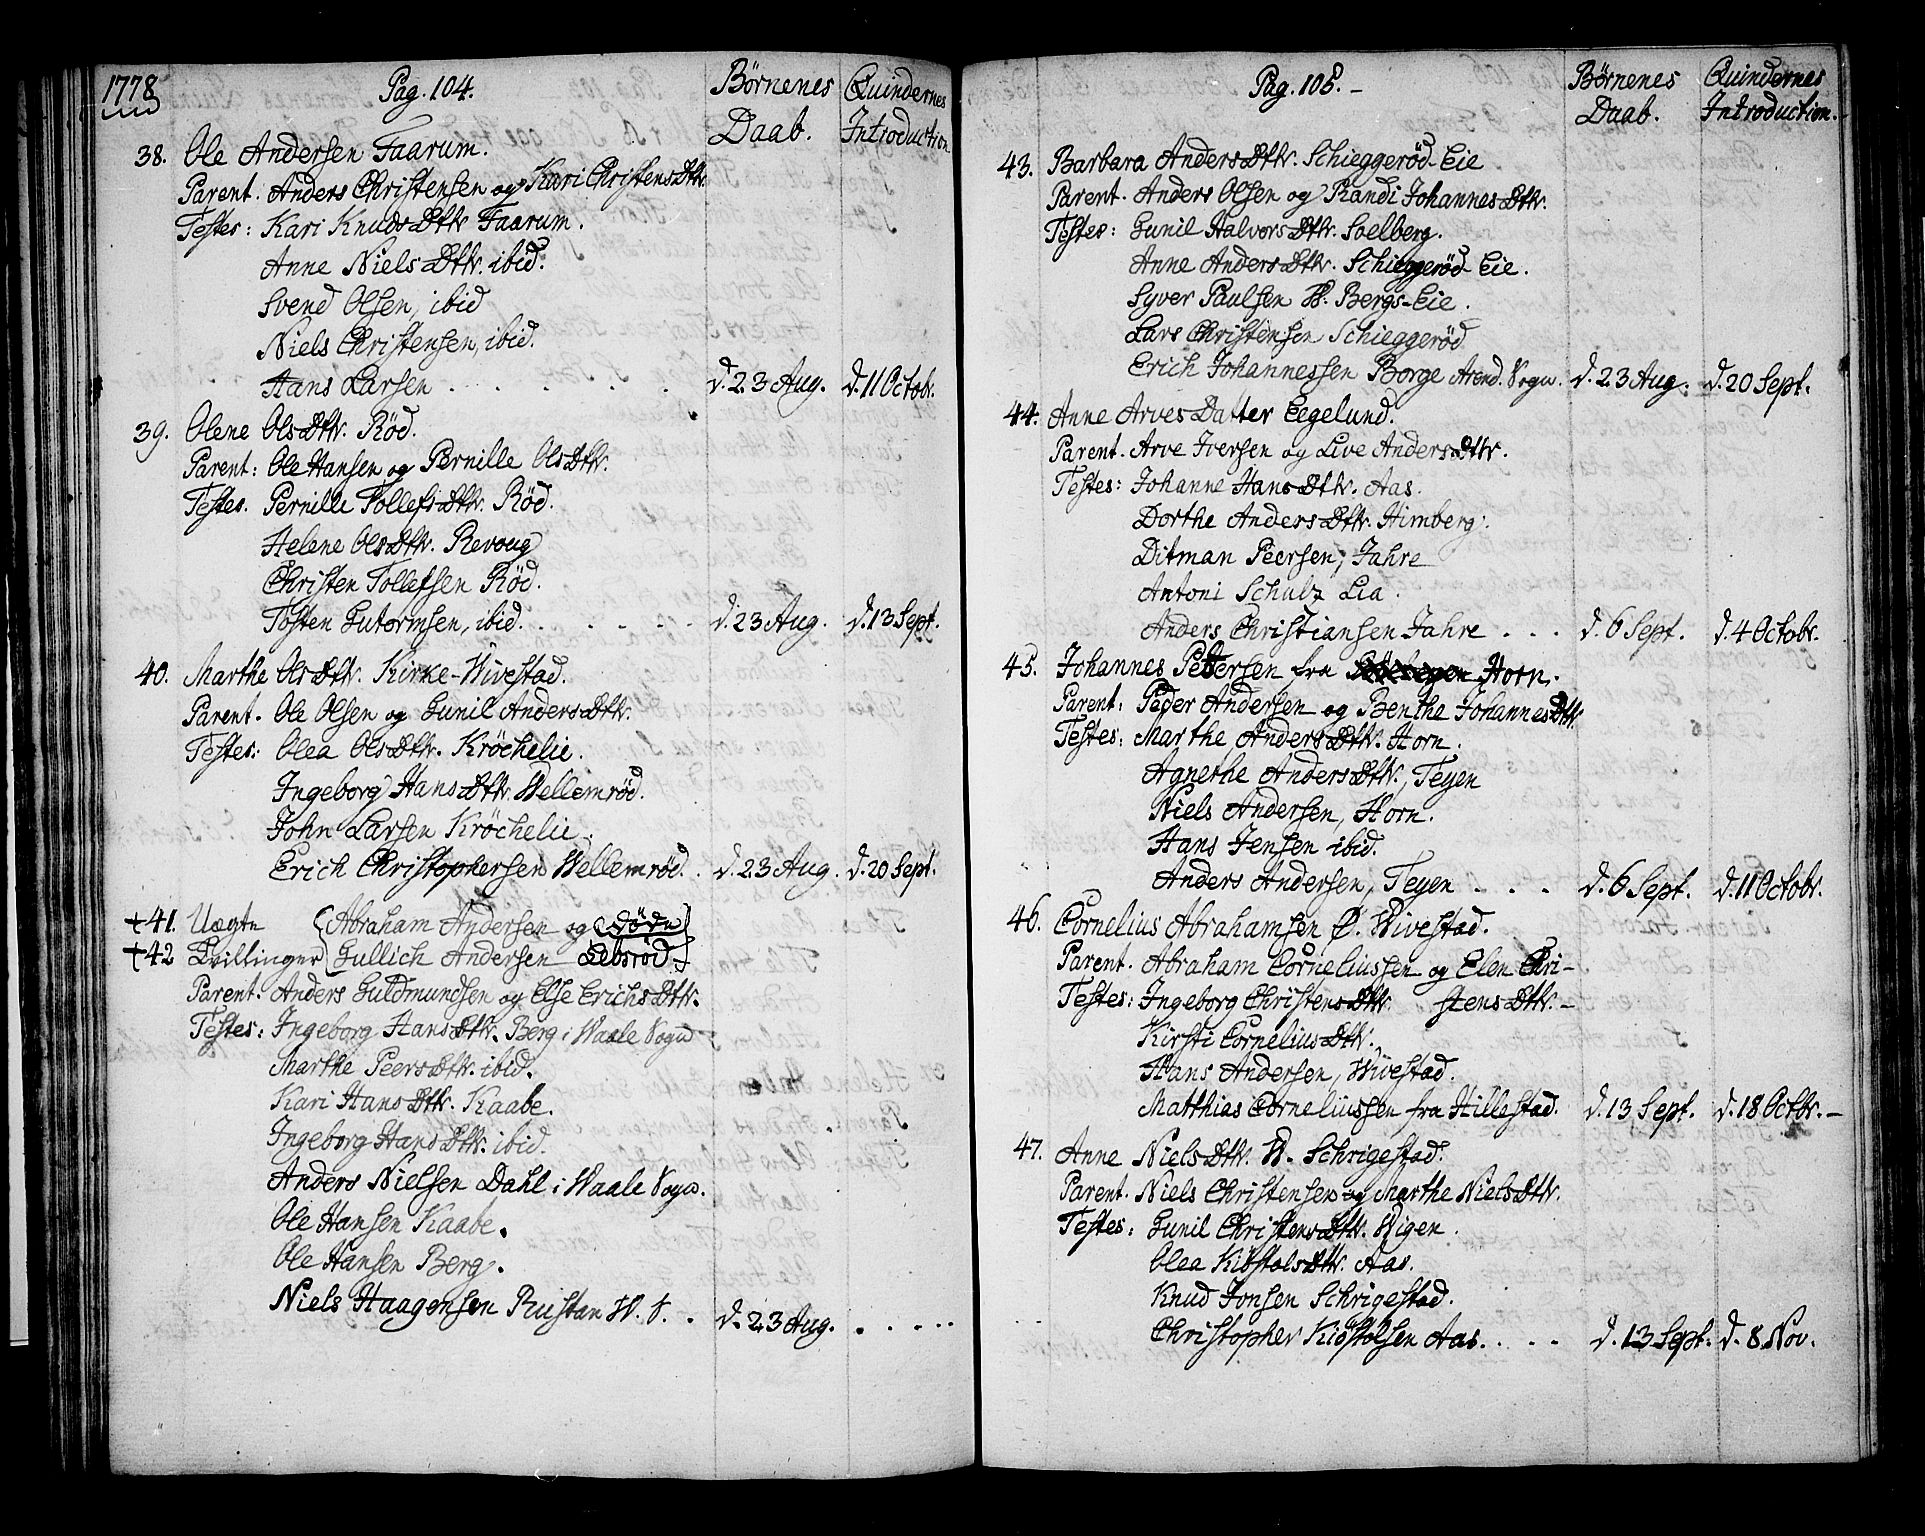 1778
Pag. 104.
Börnenes Daab.
Quindernes Introduction
38. Ole Andersen Faarum.
Parent. Anders Christensen og Kari Christens Dttr.
Testes: Kari Knuds Dttr Faarum.
Anne Niels Dttr. ibid.
Svend Olsen, ibid
Niels Christensen, ibid.
Hans Larsen . . . . . . d. 23 Aug. d. 11 Octobr.
39. Olene Ols Dttr. Röd.
Parent: Ole Hansen og Pernille Ols Dttr.
Testes. Pernille Tollefs Dttr. Röd.
Helene Ols Dttr. Revoug
Christen Tollefsen Röd.
Tosten Gutormsen, ibid. . . . . . d. 23 Aug. d. 13 Sept.
40. Marthe Ols Dttr. Kirke-Wivestad.
Parent. Ole Olsen og Gunil Anders Dttr.
Testes: Olea Ols Dttr. Kröchelie.
Ingeborg Hans Dttr. Wellemröd.
John Larsen Kröchelie.
Erich Christophersen Wellemröd. . d. 23 Aug. d. 20 Sept.
+41. Uægte (Abraham Andersen og (döde)
+42 Tvillinger (Gullich Andersen Lebsröd.)
Parent. Anders Guldmundsen og Else Erichs Dttr.
Testes: Ingeborg Hans Dttr. Berg i Waale Sogn
Marthe Peers Dttr. ibid.
Kari Hans Dttr. Kaabe.
Ingeborg Hans Dttr. ibid.
Anders Nielsen Dahl i Waale Sogn.
Ole Hansen Kaabe.
Ole Hansen Berg.
Niels Haagensen Rustan W. S. . d. 23 Aug. . . . . .
Pag. 105. -
Börnenes Daab.
Quindernes Introduction.
43. Barbara Anders Dttr. Schieggeröd-Eie
Parent. Anders Olsen og Randi Johannes Dttr.
Testes: Gunil Halvors Dttr. Solberg.
Anne Anders Dttr. Schieggeröd-Eie.
Syver Paulsen W. Bergs-Eie.
Lars Christensen Schieggeröd
Erich Johannessen Borge Arend. Sogn. d. 23 Aug. d. 20 Sept.
44. Anne Arves Datter Eegelund.
Parent. Arve Iversen og Live Anders Dttr.
Testes: Johanne Hans Dttr. Aas.
Dorthe Anders Dttr. Himberg.
Ditman Peersen, Jahre
Antoni Schulz Lia.
Anders Christiansen Jahre . . . d. 6 Sept. d. 4 Octobr.
45. Johannes Pettersen fra Horn.
Parent: Peder Andersen og Benthe Johannes Dttr.
Testes: Marthe Anders Dttr. Horn.
Agnethe Anders Dttr., Teyen
Niels Andersen, Horn.
Hans Jensen ibid.
Anders Andersen, Teyen . . . . d. 6 Sept. d. 11 Octobr.
46. Cornelius Abrahamsen Ø. Wivestad.
Parent. Abraham Corneliussen og Elen Chri-
Testes: Ingeborg Christens Dttr. stens Dttr. -
Kirsti Cornelius Dttr.
Hans Andersen, Wivestad.
Matthias Corneliussen fra Hillestad. d. 13 Sept. d. 18 Octbr. -
47. Anne Niels Dttr. W. Schrigestad.
Parent. Niels Christensen og Marthe Niels Dttr.
Testes: Gunil Christens Dttr. Wigen.
Olea Kibstols Dttr. Aas.
Knud Jonsen Schrigestad.
Christopher Kibstolsen Aas. . . . . d. 13 Sept. d. 8 Nov.